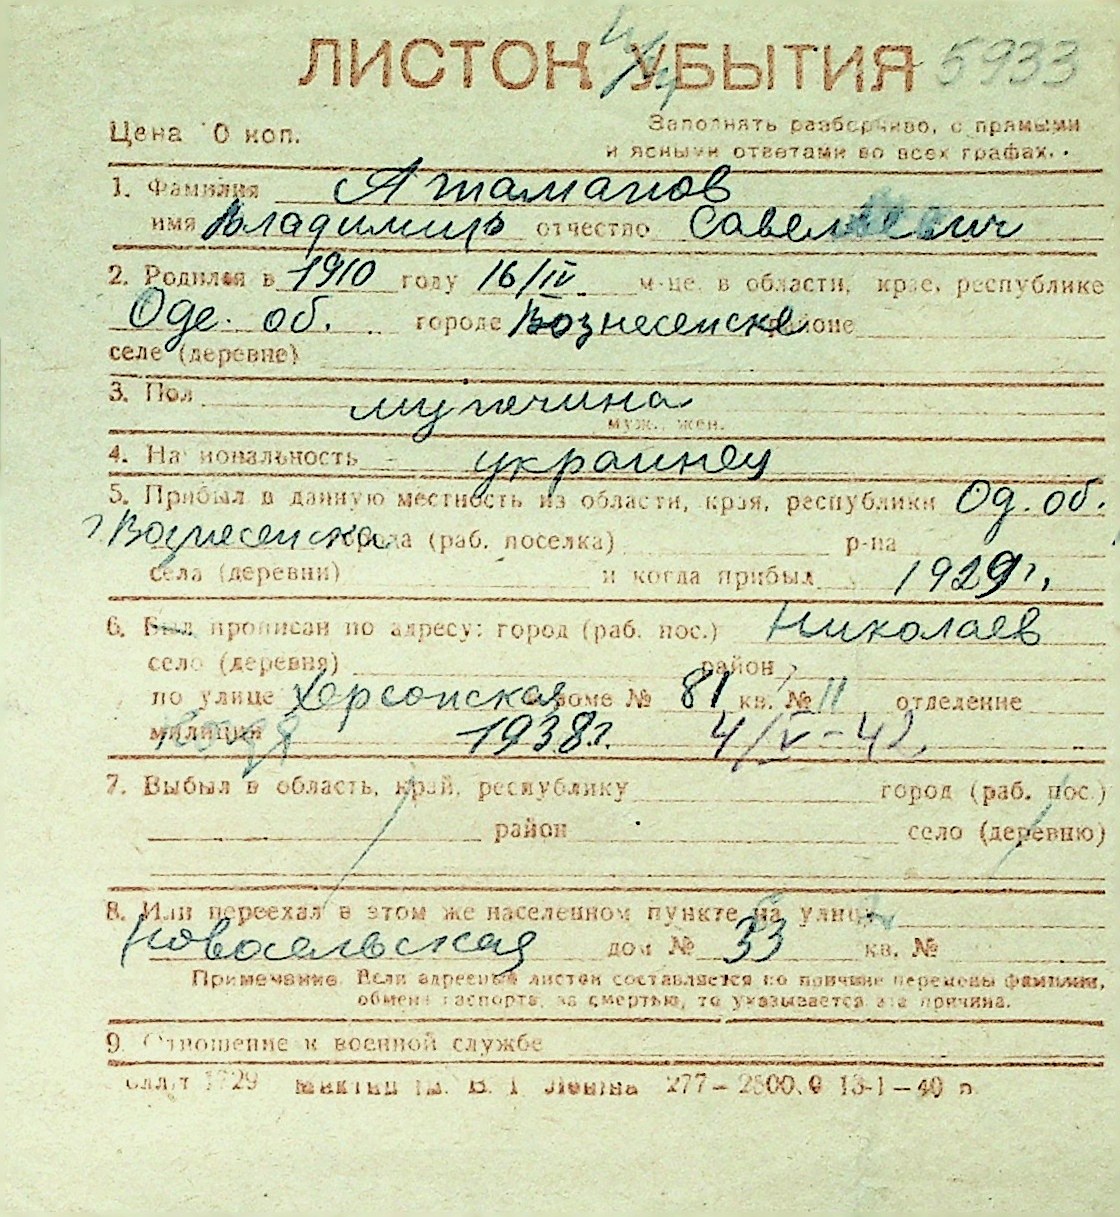 ЛИСТОК УБЫТИЯ 5933
Цена 10 коп. Заполнять разборчиво, с прямыми
и ясными ответами во всех графах.
1. Фамилия Атаманов
имя Владимир отчество Савельевич
2. Родился в 1910 году 16/IV м-це, в области, крае, республике
Оде. об. городе Вознесенске районе
селе (деревне)
3. Пол мужчина
муж., жен.
4. Национальность украинец
5. Прибыл в данную местность из области, края, республики Од. об.
г Вознесенска города (раб. поселка) р-на
села (деревни) и когда прибыл 1929 г.
6. Был прописан по адресу: город (раб. пос.) Николаев
село (деревня) район
по улице Херсонская в доме № 81 кв. № 11 отделение
милиции когда 1938 г. 4/V-42
7. Выбыл в область, край, республику город (раб. пос.)
район село (деревню)
8. Или переехал в этом же населенном пункте на улицу
Новосельская дом № 33 кв. №
Примечание. Если адресный листок составляется по причине перемены фамилии,
обмена паспорта, за смертью, то указывается эта причина.
9. Отношение к военной службе
1729 им. В. І. Леніна 277—2500. 13-1—40 р.